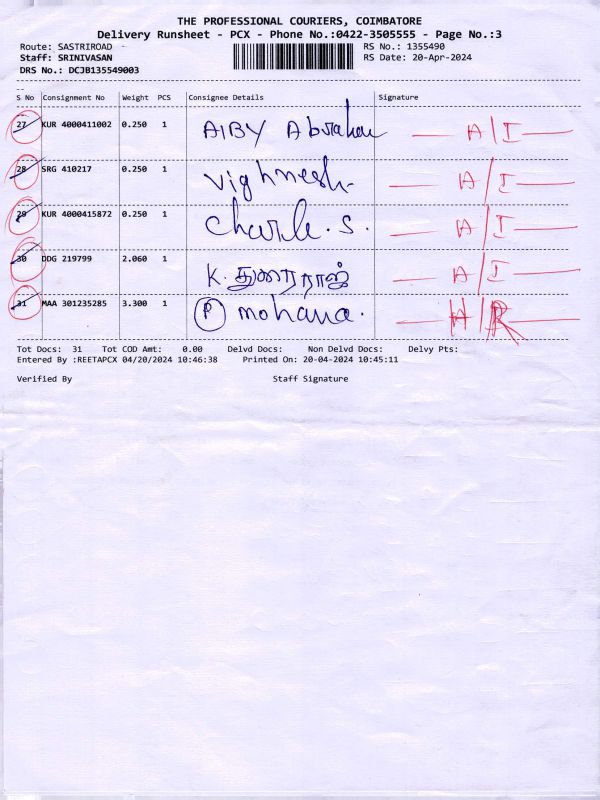 THE PROFESSIONAL COURIERS, COIMBATORE
Delivery Runsheet - PCX - Phone No.:0422-3505555 - Page No.:3
Route: SASTRIROAD - RS No.: 1355490
Staff: SRINIVASAN RS Date: 20-Apr-2024
DRS No.: DCJB135549003
S No Consignment No Weight PCS Consignee Details Signature
27 KUR 4000411002 0.250 1 AIBY Abraham A/I
28 SRG 410217 0.250 1 Vighnesh A/I
29 KUR 4000415872 0.250 1 Charle. S. A/I
30 DDG 219799 2.060 1 K. துரைராஜ் A/I
31 MAA 301235285 3.300 1 P mohana. H/R
Tot Docs: 31 Tot COD Amt: 0.00 Delvd Docs: Non Delvd Docs: Delvy Pts:
Entered By :REETAPCX 04/20/2024 10:46:38 Printed On: 20-04-2024 10:45:11
Verified By Staff Signature